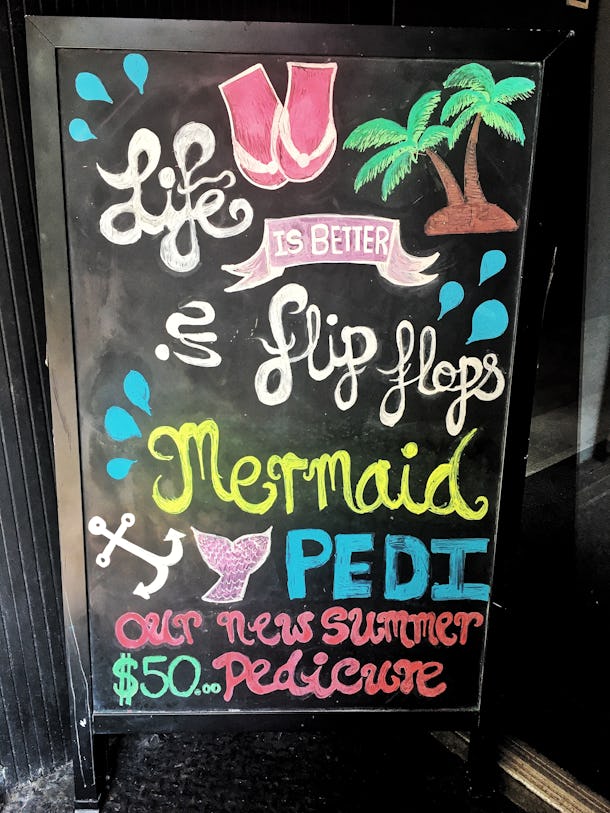 Life
IS BETTER
in flip flops
Mermaid
PEDI
our new summer
$50.00 Pedicure